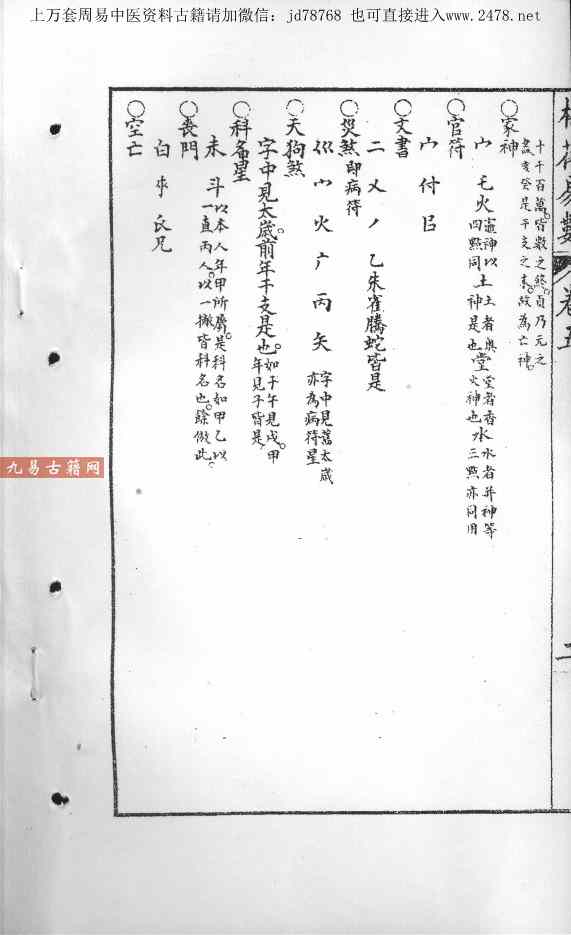 上万套周易中医资料古籍请加微信：jd78768 也可直接进入www.2478.net
梅花易數 卷五
二
十千百萬皆數之終貞乃元之
盡亥癸是干支之末故為亡神
○家神
宀 乇 火 竈神以四點同 土 土者奧神是也 堂 堂者香火神也 水 水者井神等三點亦同用
○官符
宀 付 㠯
○文書
二 乂 丿 乙 朱雀騰蛇皆是
○災煞 即病符
巛 宀 火 疒 丙 矢 字中見舊太歲亦為病符星
○天狗煞
字中見太歲前年干支是也 如子午見戌甲年見子皆是
○科名星
未 斗 以本人年甲所屬是科名如甲乙以一直丙人以一撇皆科名也餘倣此
○喪門
白 氏 兄
○空亡
九易古籍网